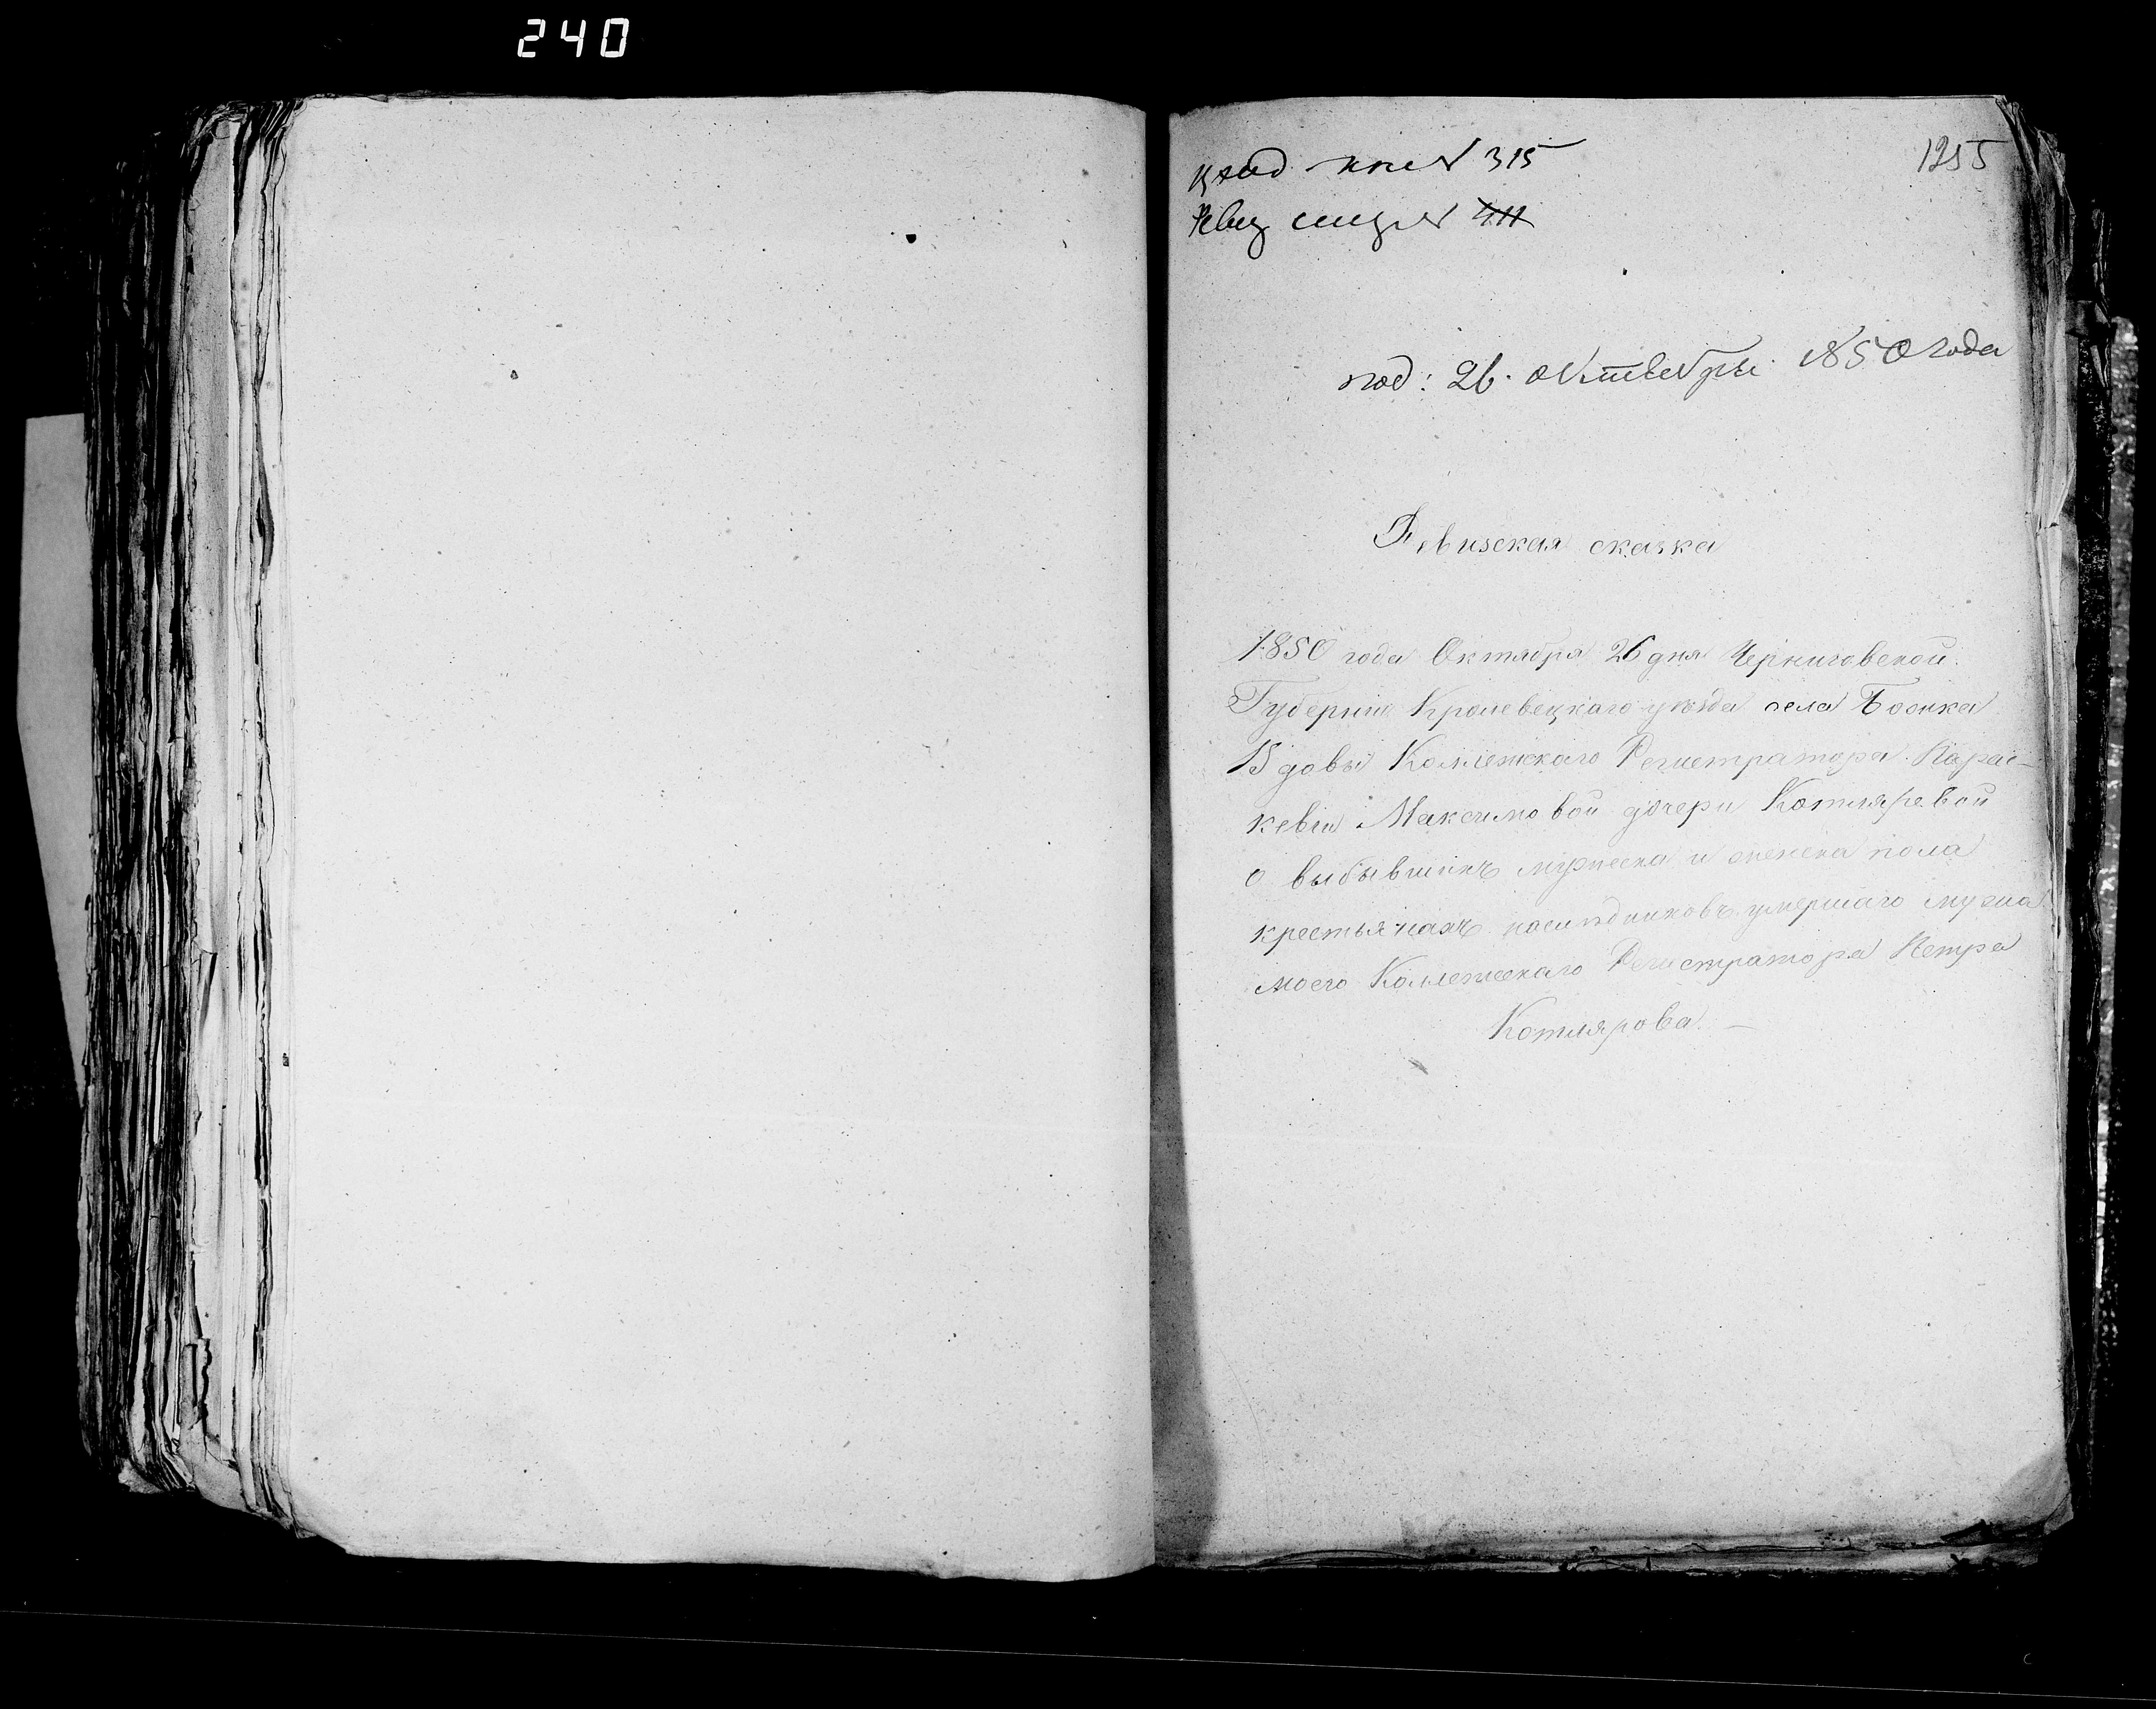 240
1255
315
411
под: 26. октября 1850 года
Ревизская сказка
1850 года Октября 26 дня Черниговской
Губерніи Кролевецкаго уѣзда села
Вдовы Коллежскаго Регистратора Парас-
кевіи Максимовой дочери Котляревой
о выбывшихъ мужеска и женска пола
крестьянахъ наслѣдниковъ умершаго мужа
моего Коллежскаго Регистратора Петра
Котлярова. —